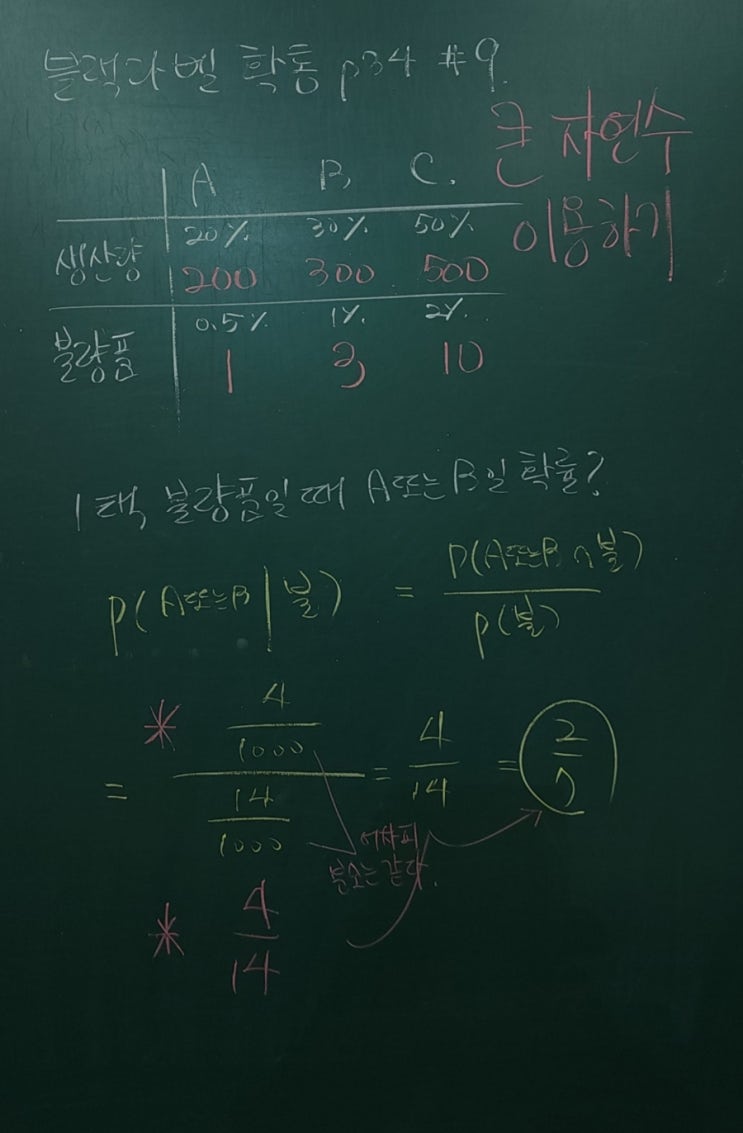 블랙라벨 확통 p34 #9.
큰 자연수
이용하기
A B C.
20% 30% 50%
생산량 200 300 500
0.5% 1% 2%
불량품 1 3 10
1택 불량품일 때 A또는B일 확률?
P(A또는B | 불) = P(A또는B ∩ 불) / P(불)
* = 4/1000 / 14/1000 = 4/14 = 2/7
어차피
분모는 같다.
* 4/14